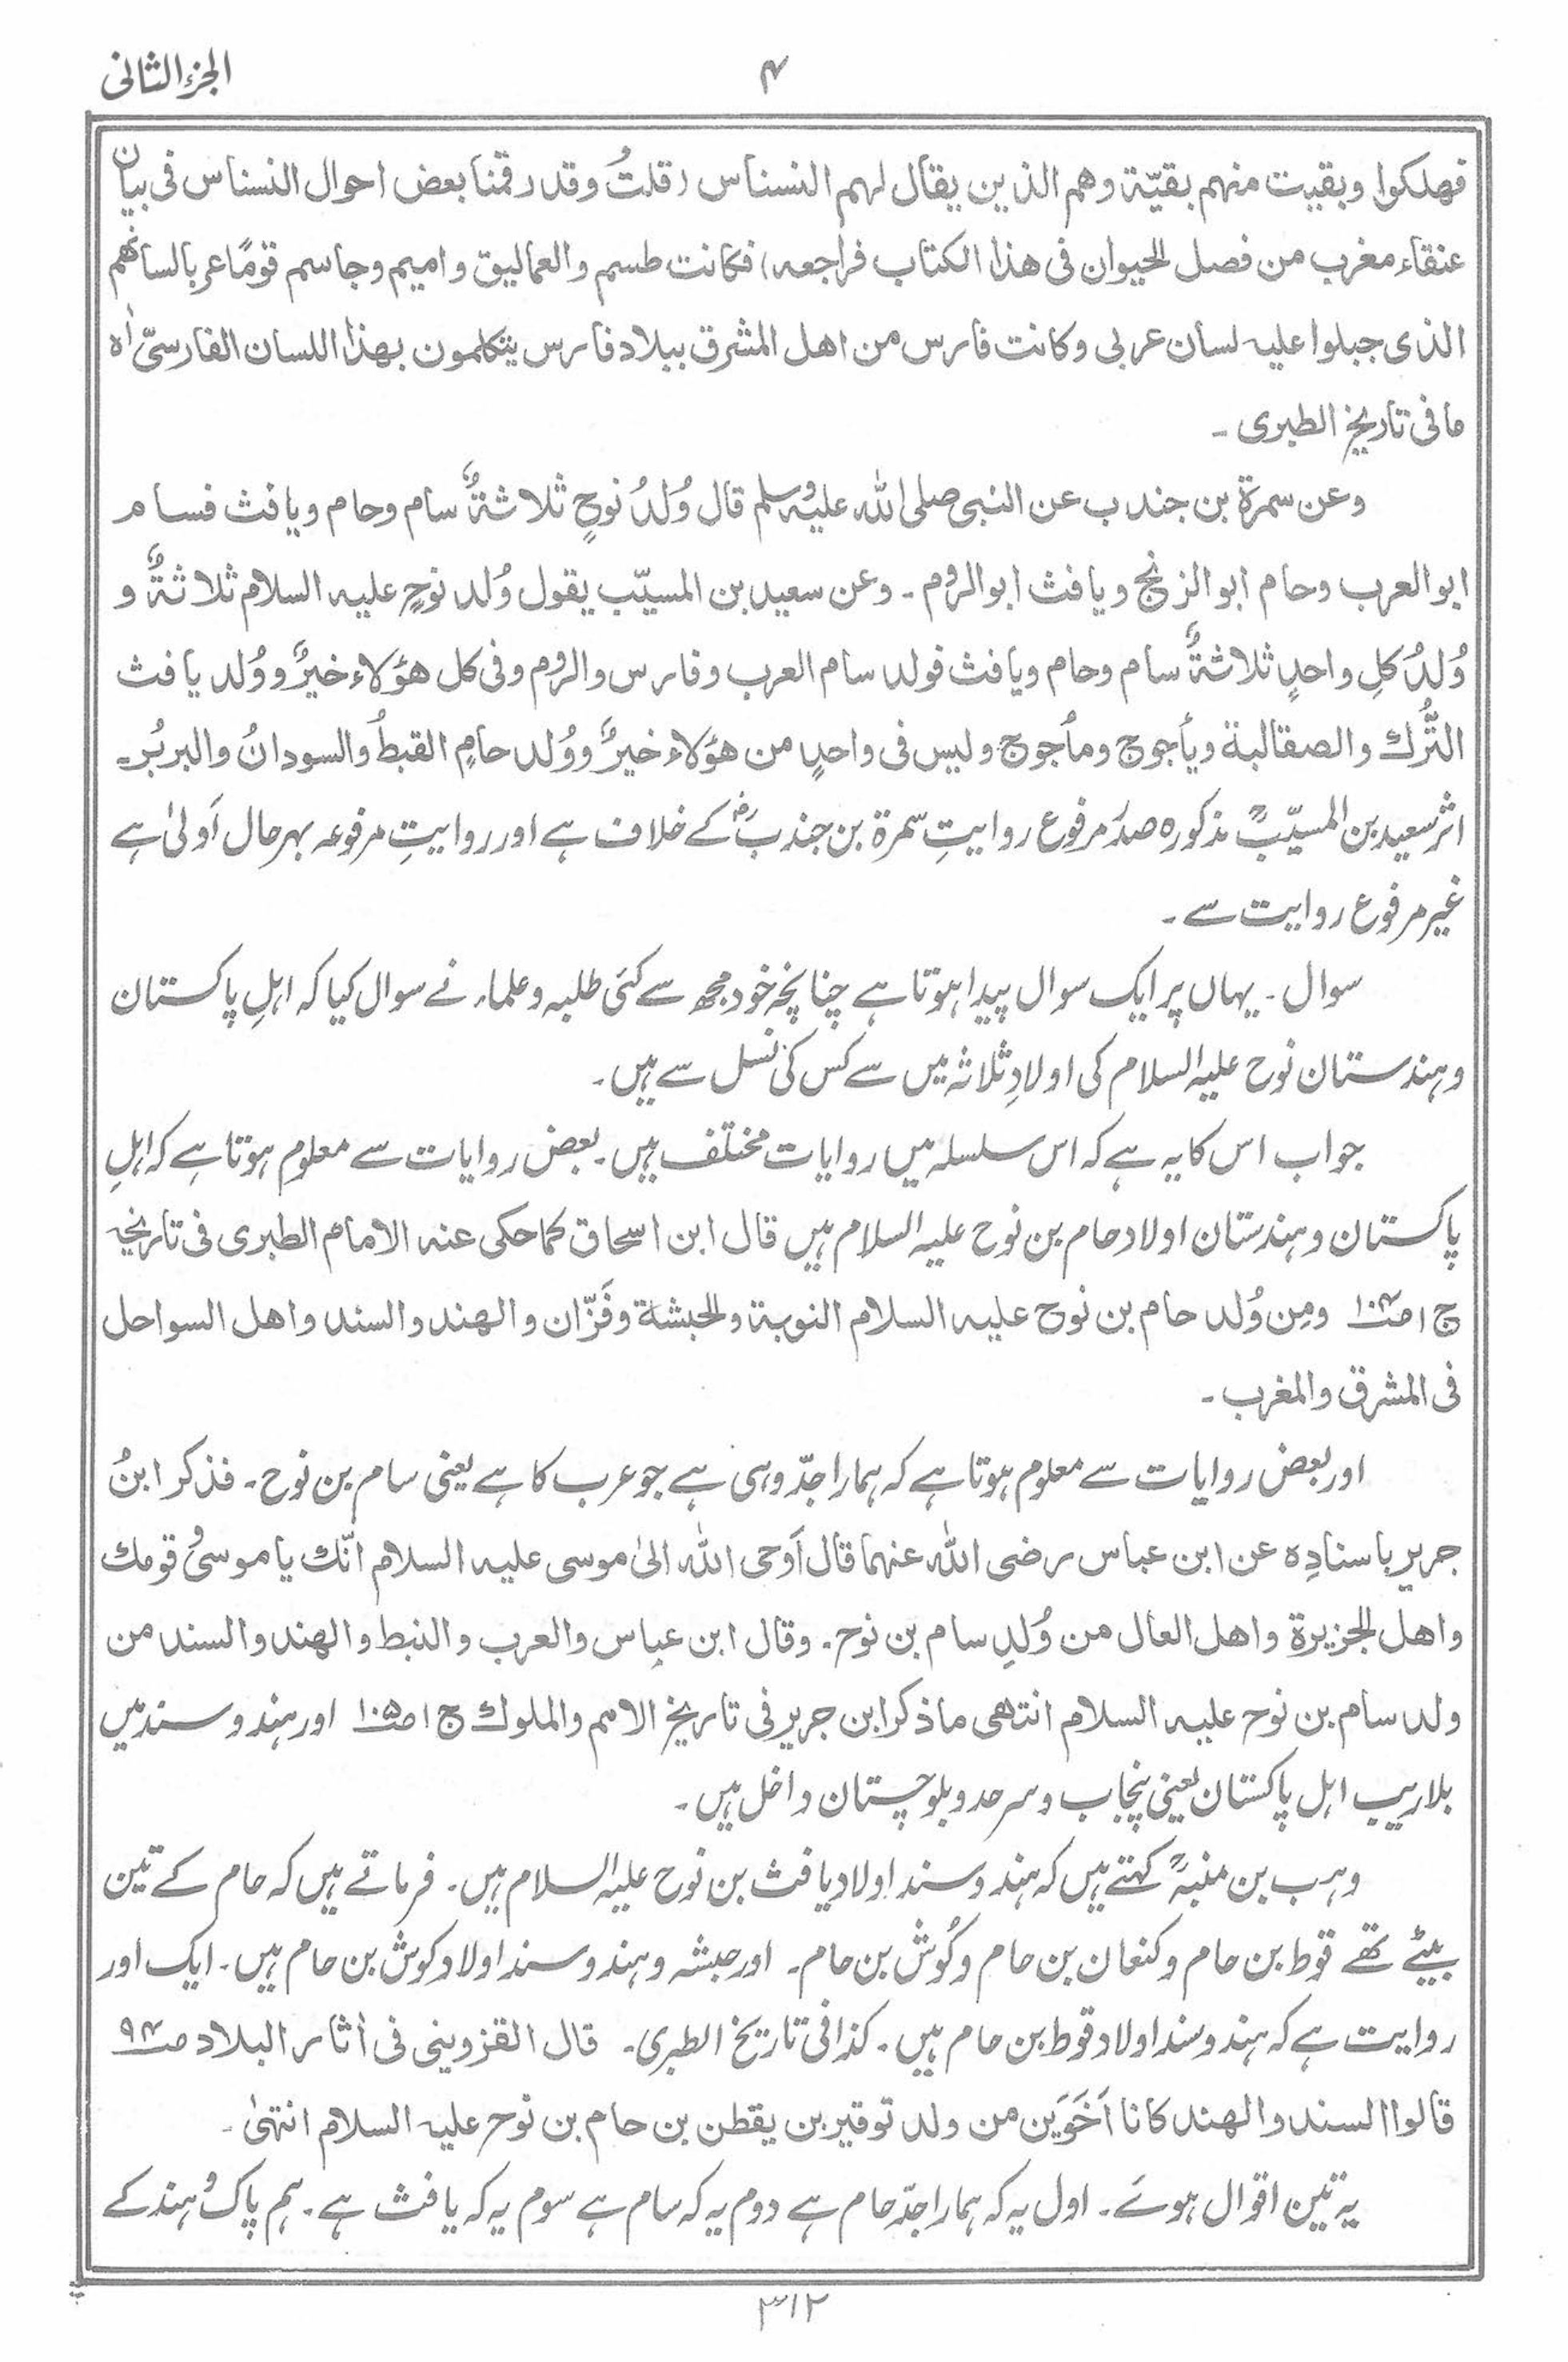 الجزء الثانی
۴
فهلكوا وبقيت منهم بقيّة وهم الذين يقال لهم النسناس (قلتُ وقد رقمنا بعض احوال النسناس فى بيان
عنقاء مغرب من فصل الحيوان فى هذا الكتاب فراجعه) فكانت طسم والعماليق واميم وجاسم قومًا عربا لسانهم
الذى جبلوا عليه لسان عربى وكانت فارس من اهل المشرق ببلاد فارس يتكلمون بهذا اللسان الفارسىّ اٰه
ما فى تاريخ الطبرى ۔
وعن سمرة بن جندب عن النبى صلى الله عليه وسلم قال وُلدُ نوحٍ ثلاثةٌ سام وحام ويافث فسام
ابو العرب وحام ابو الزنج ويافث ابو الروم ۔ وعن سعيد بن المسيّب يقول وُلد نوحٍ عليه السلام ثلاثةٌ و
وُلدُ كلِ واحدٍ ثلاثةٌ سام وحام ويافث فولد سام العرب وفارس والروم وفى كل هؤلاء خيرٌ ووُلد يافث
التُّرك والصقالبة ويأجوج ومأجوج وليس فى واحدٍ من هؤلاء خيرٌ ووُلد حامٍ القبطُ والسودانُ والبربرُ۔
اثر سعید بن المسیّبؒ مذکورہ صدر مرفوع روایتِ سمرۃ بن جندبؓ کے خلاف ہے اور روایتِ مرفوعہ بہر حال اَولیٰ ہے
غیر مرفوع روایت سے ۔
سوال ۔ یہاں پر ایک سوال پیدا ہوتا ہے چنانچہ خود مجھ سے کئی طلبہ و علماء نے سوال کیا کہ اہلِ پاکستان
و ہندستان نوح علیہ السلام کی اولادِ ثلاثہ میں سے کس کی نسل سے ہیں ۔
جواب اس کا یہ ہے کہ اس سلسلہ میں روایات مختلف ہیں ۔ بعض روایات سے معلوم ہوتا ہے کہ اہلِ
پاکستان و ہندستان اولاد حام بن نوح علیہ السلام ہیں قال ابن اسحاق كما حكى عنه الامام الطبرى فى تاريخه
ج ۱ صـ۱۰۴ ومِن وُلد حام بن نوح عليه السلام النوبة والحبشة وفَزّان والهند والسند واهل السواحل
فى المشرق والمغرب ۔
اور بعض روایات سے معلوم ہوتا ہے کہ ہمارا جدّ وہی ہے جو عرب کا ہے یعنی سام بن نوح ۔ فذكر ابنُ
جرير باسنادِه عن ابن عباس رضى الله عنهما قال اَوحى الله الىٰ موسى عليه السلام انّك يا موسىٰ وقومك
واهل الجزيرة واهل العال من وُلدِ سام بن نوح ۔ وقال ابن عباس والعرب والنبط والهند والسند من
ولد سام بن نوح عليه السلام انتهى ما ذكر ابن جرير فى تاريخ الامم والملوك ج ۱ صـ۱۰۵ اور ہند و سند میں
بلا ریب اہل پاکستان یعنی پنجاب و سرحد و بلوچستان داخل ہیں ۔
وہب بن منبہؒ کہتے ہیں کہ ہند و سند اولاد یافث بن نوح علیہ السلام ہیں ۔ فرماتے ہیں کہ حام کے تین
بیٹے تھے قوط بن حام و کنعان بن حام و کُوش بن حام ۔ اور حبشہ و ہند و سند اولاد کوش بن حام ہیں ۔ ایک اور
روایت ہے کہ ہند و سند اولاد قوط بن حام ہیں ۔ کذا فی تاریخ الطبری ۔ قال القزوينى فى اٰثار البلاد صـ۹۴
قالوا السند والهند كانا اَخَوَين من ولد توقير بن يقطن بن حام بن نوح عليه السلام انتهىٰ ۔
یہ تین اقوال ہوئے ۔ اول یہ کہ ہمارا جدّ حام ہے دوم یہ کہ سام ہے سوم یہ کہ یافث ہے ۔ ہم پاک و ہند کے
۳۱۲